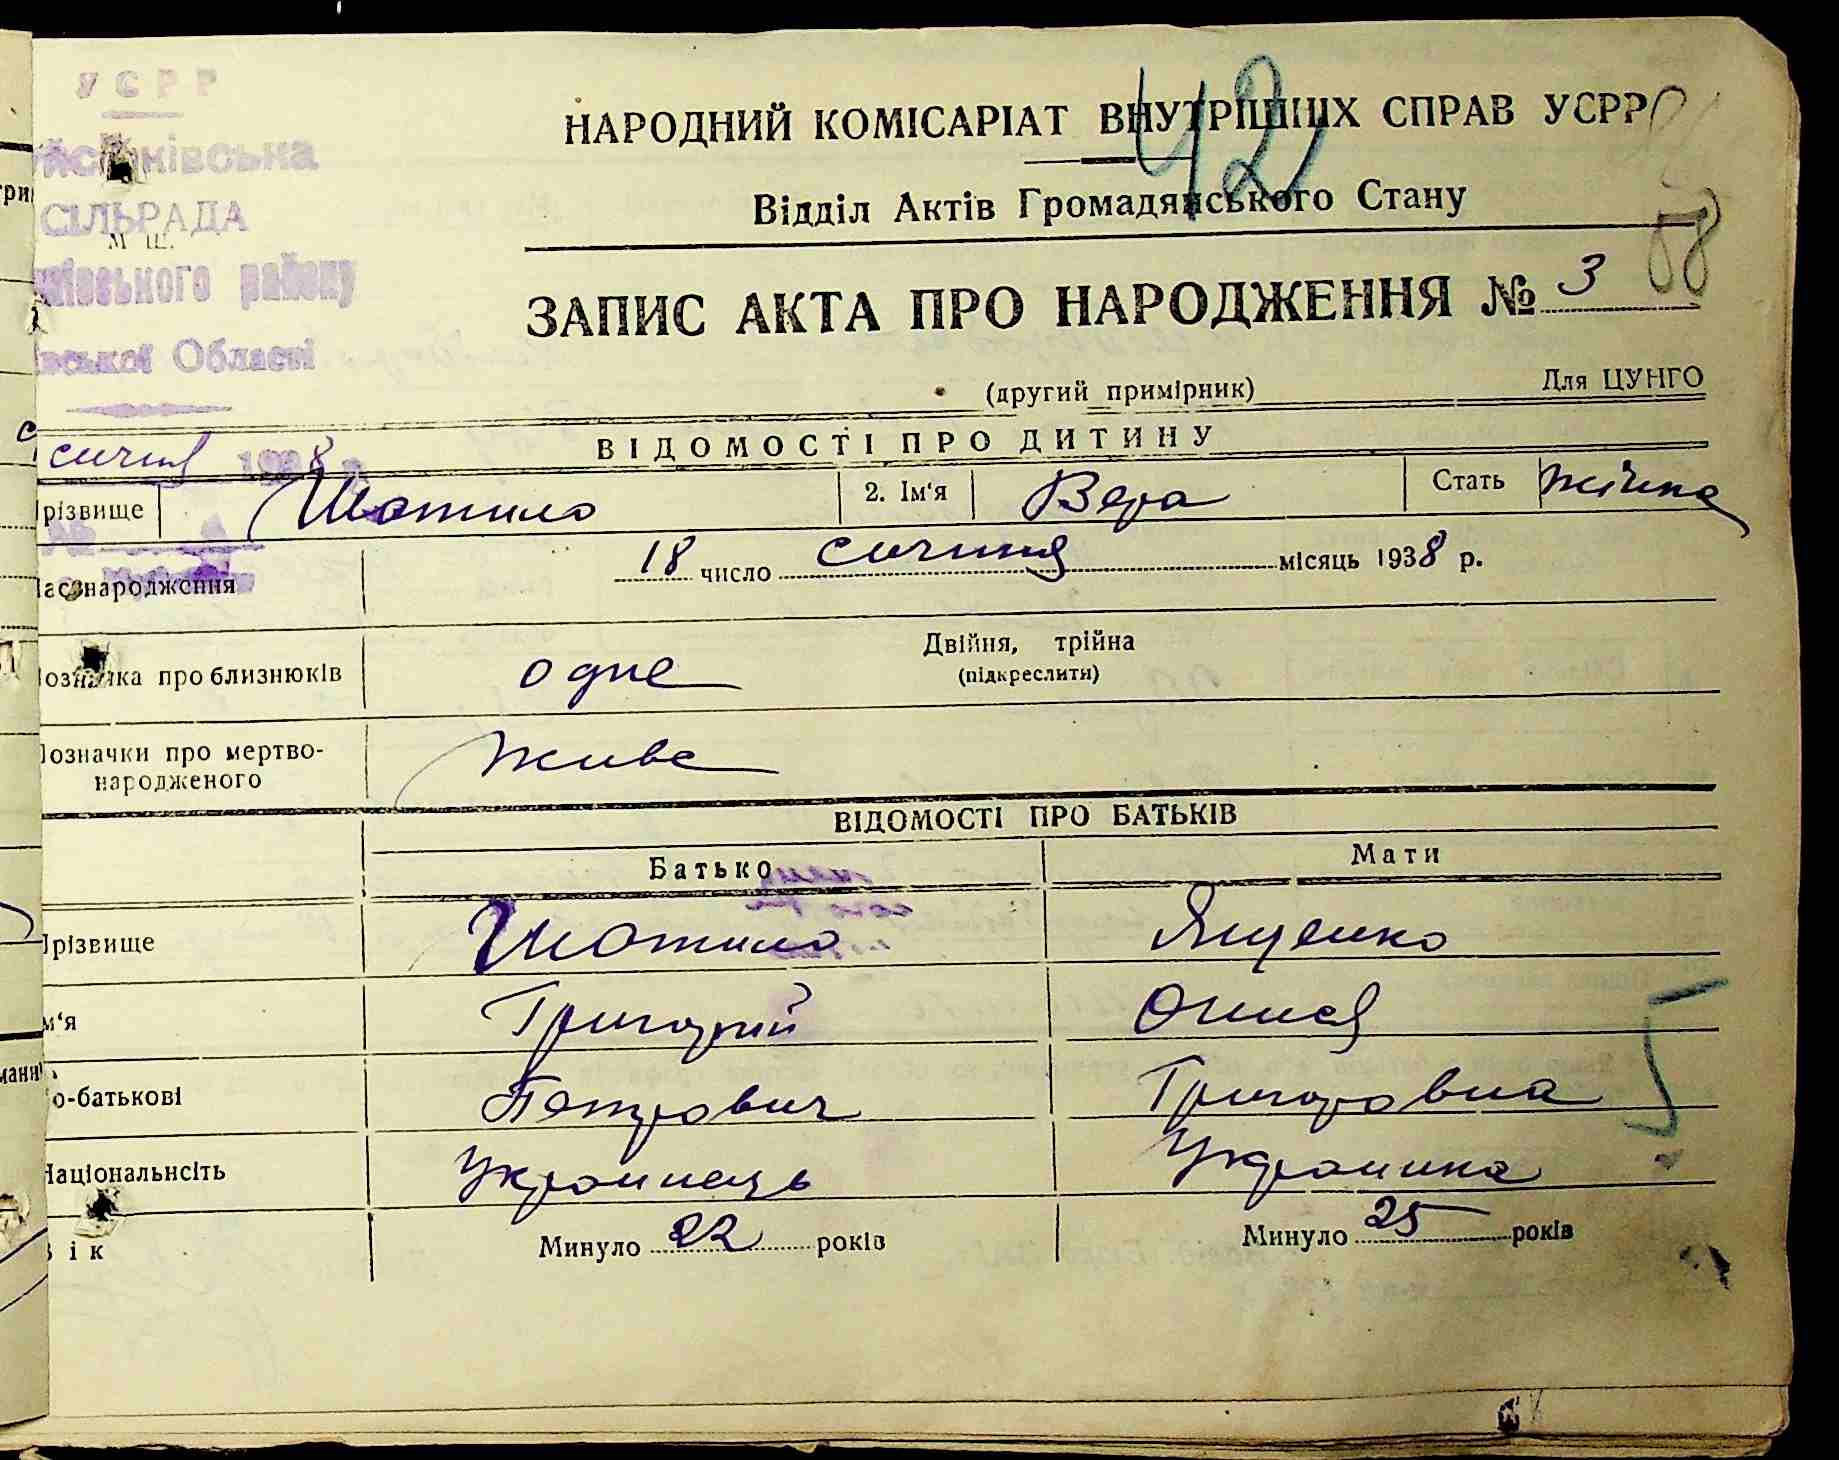 УСРР
СІЛЬРАДА
м ш.
району
Області
42
НАРОДНИЙ КОМІСАРІАТ ВНУТРІШНІХ СПРАВ УСРР
Відділ Актів Громадянського Стану
58
ЗАПИС АКТА ПРО НАРОДЖЕННЯ № 3
(другий примірник) Для ЦУНГО
січня 1938 р.
ВІДОМОСТІ ПРО ДИТИНУ
різвище Шатило 2. Ім'я Вера Стать жіноча
№
час народження 18 число січня місяць 1938 р.
означка про близнюків одне Двійня, трійна
(підкреслити)
означки про мертво-
народженого живе
ВІДОМОСТІ ПРО БАТЬКІВ
Батько Мати
різвище Шатило Ященко
м'я Григорий Онися
о-батькові Петрович Григоровна
Національність Українець Українка
в і к Минуло 22 років Минуло 25 років